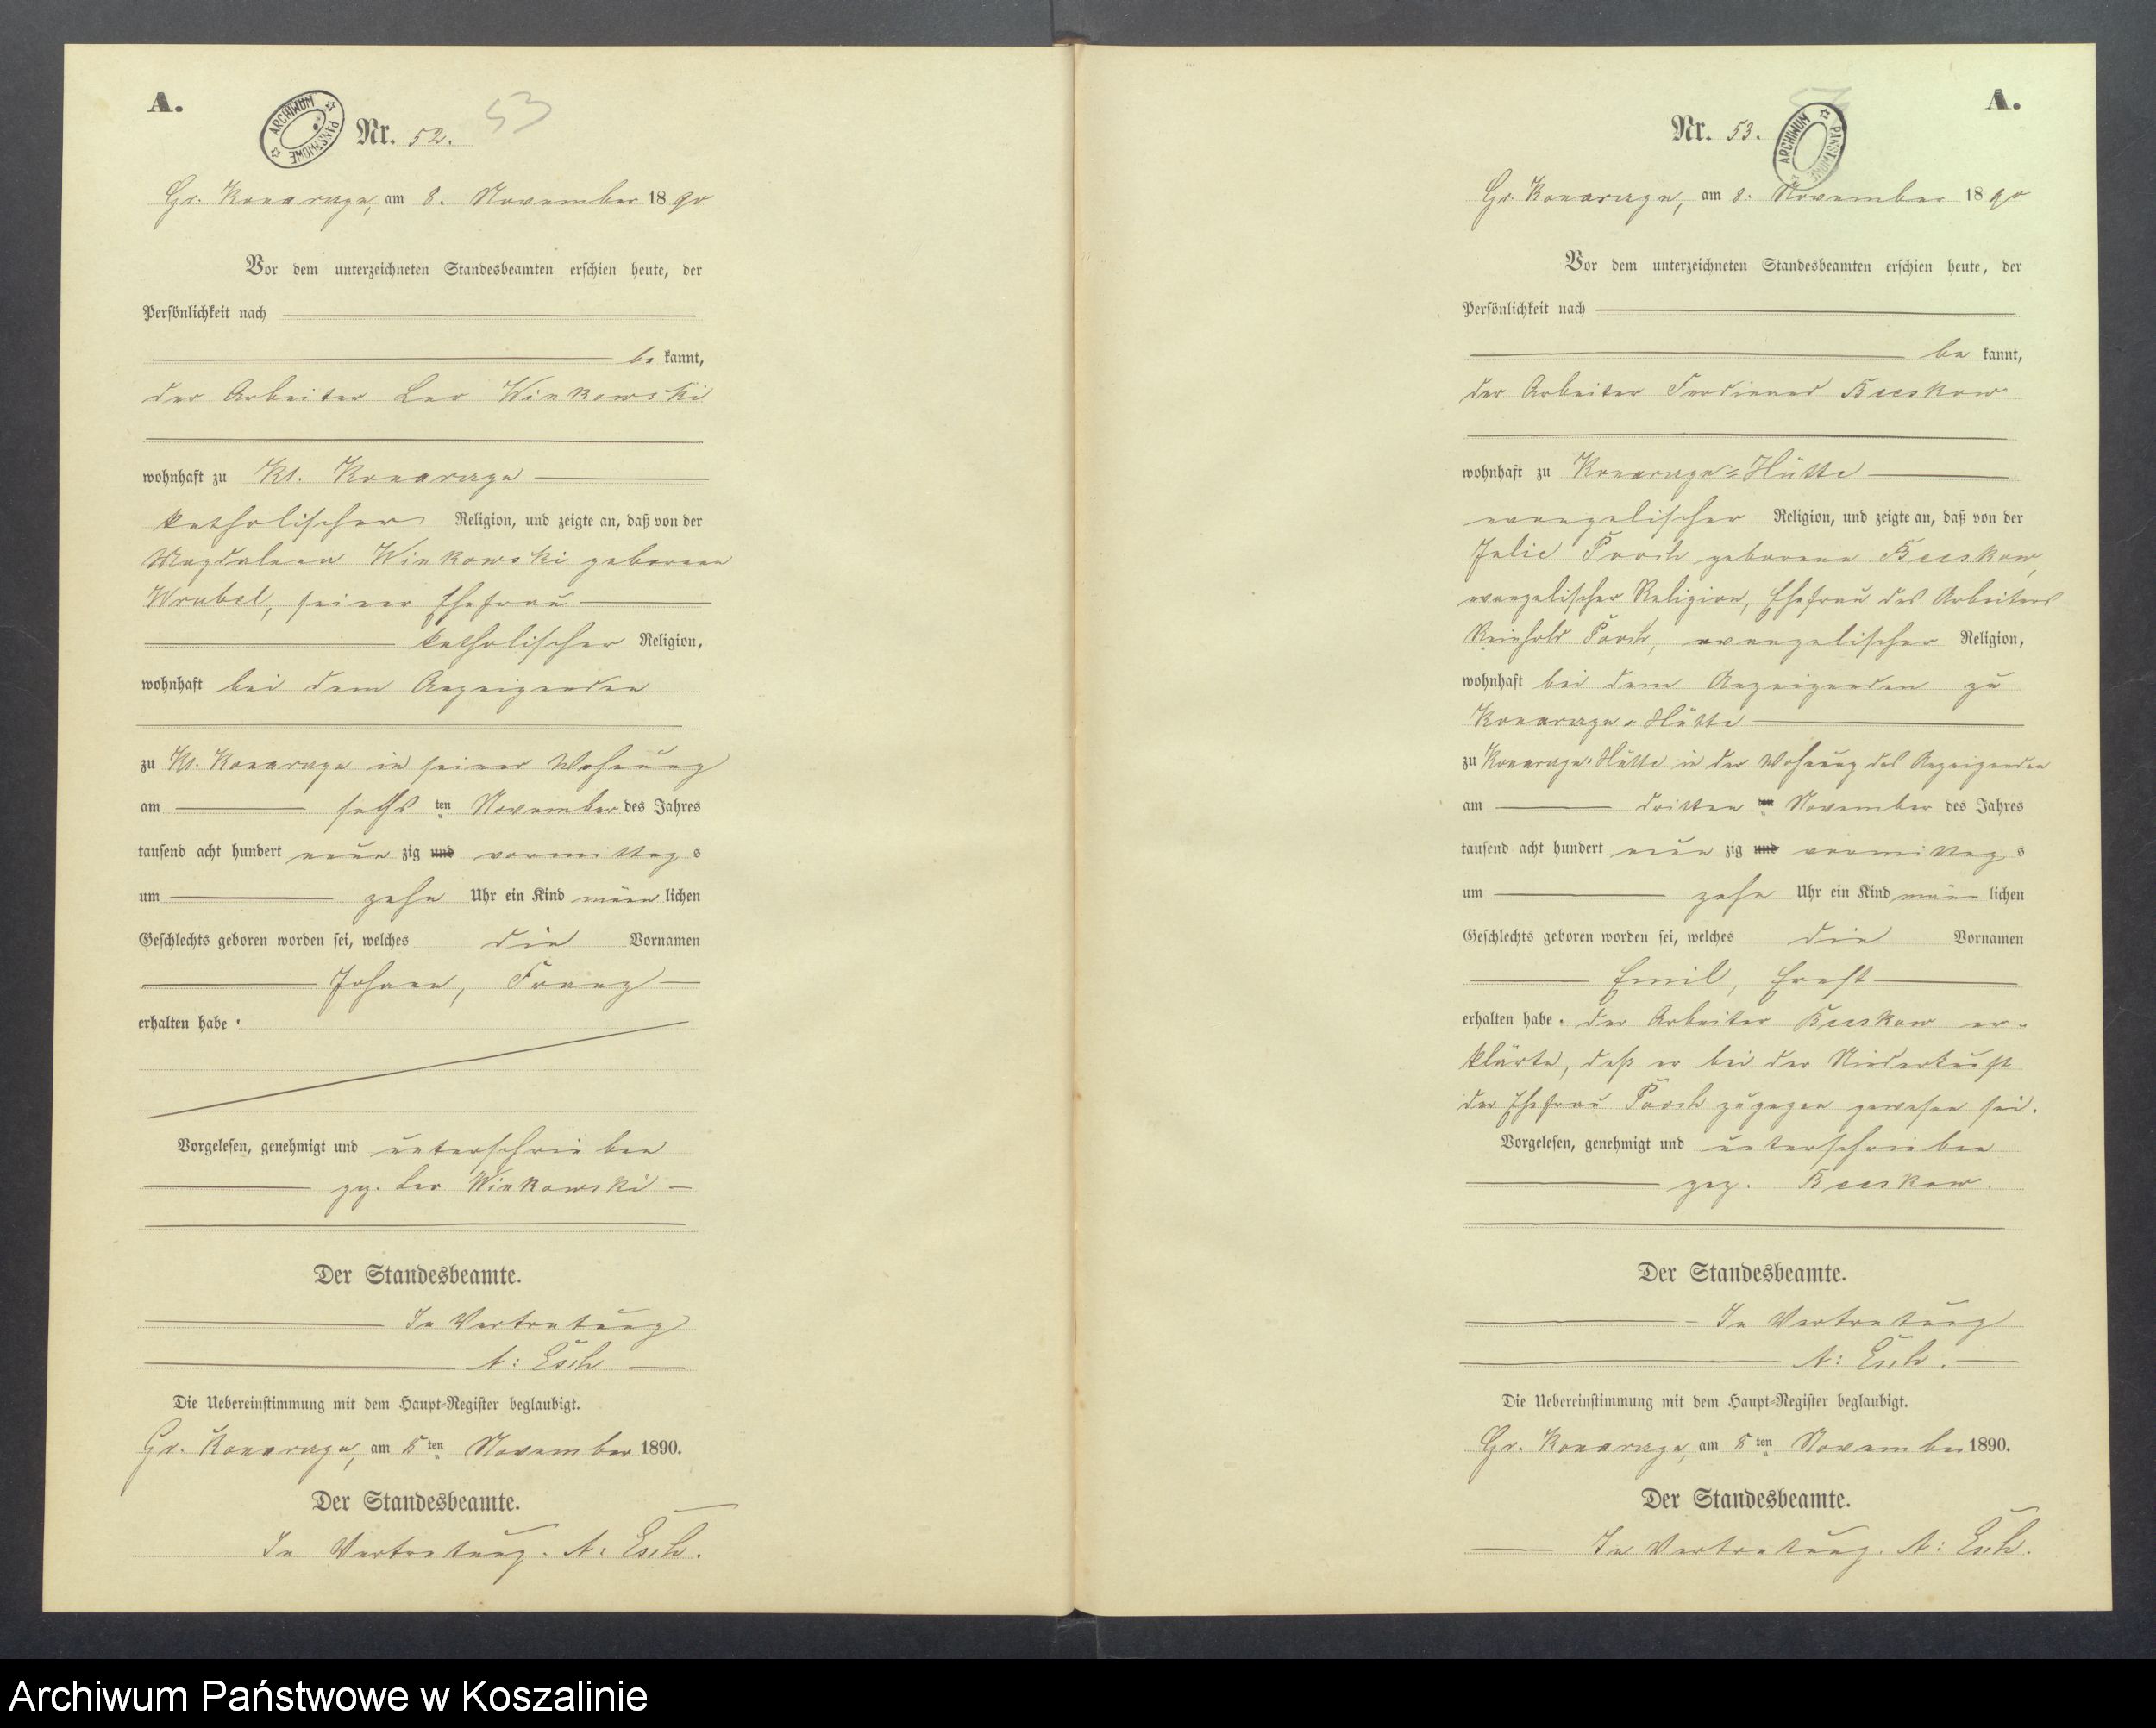 A.
ARCHIWUM PAŃSTWOWE
Nr. 52.
53
Gr. Konarczyn, am 8. November 1890
Vor dem unterzeichneten Standesbeamten erschien heute, der
Persönlichkeit nach
bekannt,
der Arbeiter Leo Winkowski
wohnhaft zu Kl. Konarczyn
katholischer Religion, und zeigte an, daß von der
Magdalena Winkowski geborenen
Wrubel, seiner Ehefrau
katholischer Religion,
wohnhaft bei dem Anzeigenden
zu Kl. Konarczyn in seiner Wohnung
am sechsten November des Jahres
tausend acht hundert neunzig und vormittags
um zehn Uhr ein Kind männlichen
Geschlechts geboren worden sei, welches die Vornamen
Johann, Franz
erhalten habe.
Vorgelesen, genehmigt und unterschrieben
gez. Leo Winkowski
Der Standesbeamte.
In Vertretung
A: Esch
Die Uebereinstimmung mit dem Haupt-Register beglaubigt.
Gr. Konarczyn, am 8ten November 1890.
Der Standesbeamte.
In Vertretung. A: Esch.
A.
Nr. 53.
ARCHIWUM PAŃSTWOWE
Gr. Konarczyn, am 8. November 1890
Vor dem unterzeichneten Standesbeamten erschien heute, der
Persönlichkeit nach
bekannt,
der Arbeiter Ferdinand Beeskow
wohnhaft zu Konarczyn-Hütte
evangelischer Religion, und zeigte an, daß von der
Julie geborenen Beeskow,
evangelischer Religion, Ehefrau des Arbeiters
Reinhold evangelischer Religion,
wohnhaft bei dem Anzeigenden zu
Konarczyn-Hütte
zu Konarczyn-Hütte in der Wohnung des Anzeigenden
am dritten ten November des Jahres
tausend acht hundert neunzig und vormittags
um zehn Uhr ein Kind männlichen
Geschlechts geboren worden sei, welches die Vornamen
Emil, Ernst
erhalten habe. Der Arbeiter Beeskow er-
klärte, daß er bei der Niederkunft
der Ehefrau zugegen gewesen sei.
Vorgelesen, genehmigt und unterschrieben
gez. Beeskow.
Der Standesbeamte.
In Vertretung
A: Esch.
Die Uebereinstimmung mit dem Haupt-Register beglaubigt.
Gr. Konarczyn, am 8ten November 1890.
Der Standesbeamte.
In Vertretung. A: Esch.
Archiwum Państwowe w Koszalinie